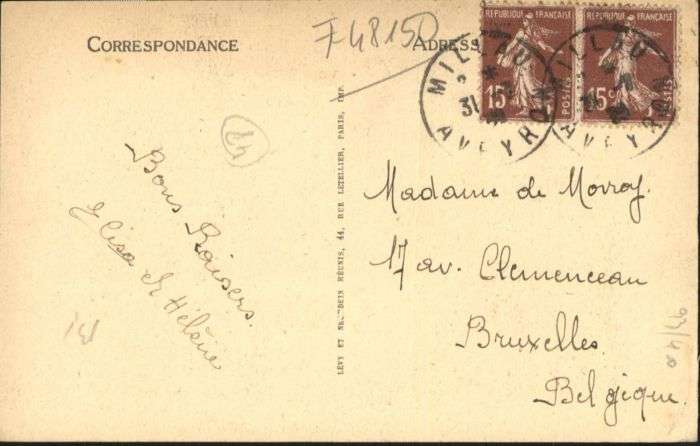 CORRESPONDANCE
F48150
ADRESS
RÉPUBLIQUE FRANÇAISE
15c
POSTES
RÉPUBLIQUE FRANÇAISE
15c
POSTES
MILLAU
31
AVEYRON
MILLAU
AVEYRON
Bons Baisers.
Elisa et Hélène
LÉVY ET NEURDEIN RÉUNIS, 44, RUE LETELLIER, PARIS, IMP.
Madame de
17 av. Clemenceau
Bruxelles
Belgique.